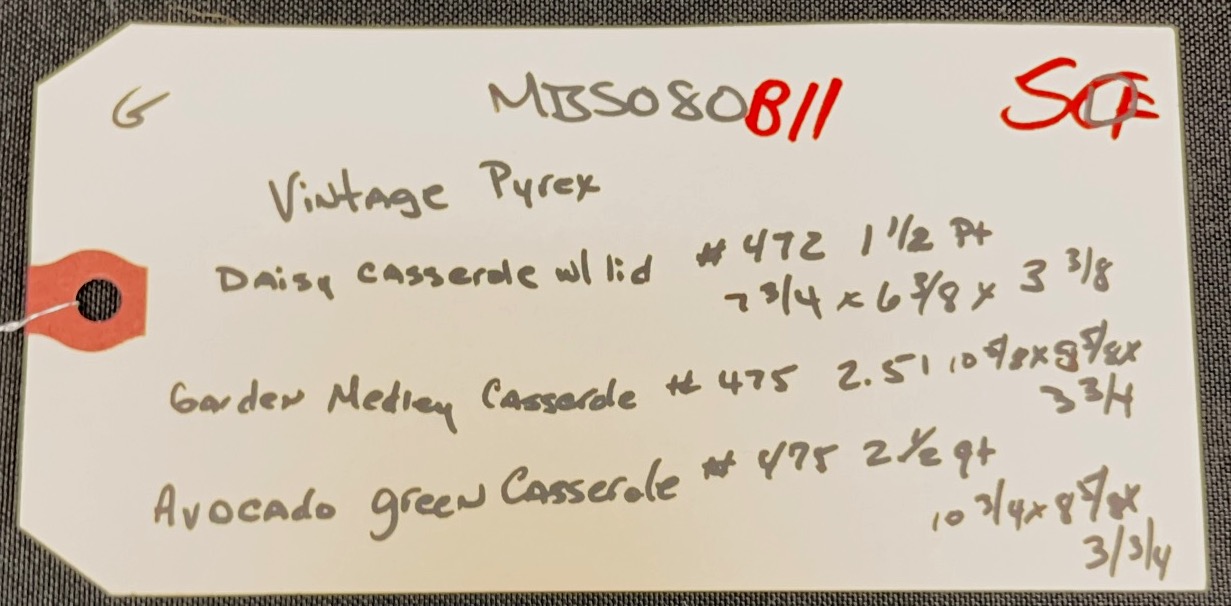 G MBS080B11
Vintage Pyrex
Daisy casserole w/ lid # 472 1 1/2 Pt
7 3/4 x 6 3/8 x 3 3/8
Garden Medley Casserole # 475 2.5l 10 5/8 x 8 5/8 x
3 3/4
Avocado green Casserole # 475 2 1/2 qt
10 3/4 x 8 5/8 x
3/3/4